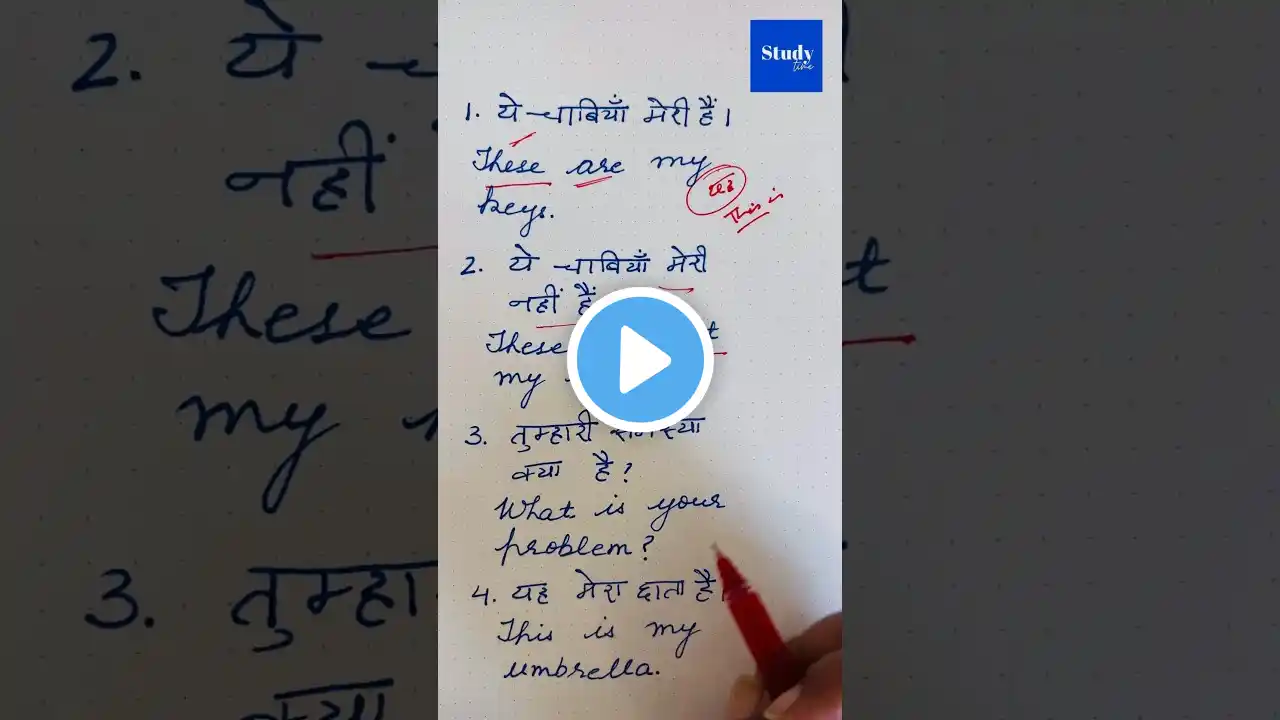 Study
time
1. ये चाबियाँ मेरी हैं।
These are my
keys.
यह
This is
2. ये चाबियाँ मेरी
नहीं हैं
These
my
3. तुम्हारी समस्या
क्या है?
What is your
problem?
4. यह मेरा छाता है।
This is my
umbrella.